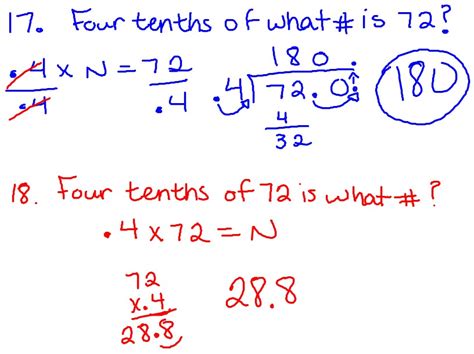 17. Four tenths of what # is 72?
180.
.4 x N = 72
.4 .4
.4 72.0.
180
4
32
18. Four tenths of 72 is what #?
.4 x 72 = N
72
x.4
28.8
28.8